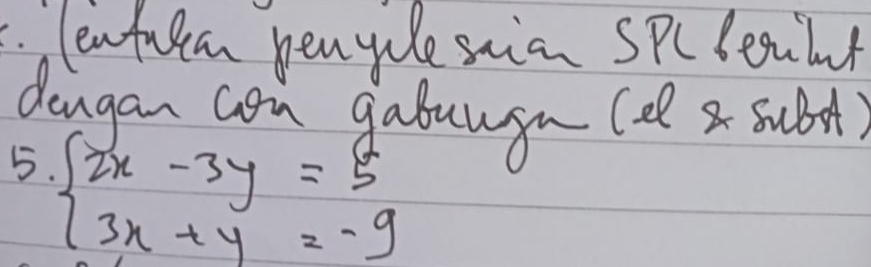 Tentukan penyelesaian SPL berikut
dengan cara gabungan (el & subst)
5. { 2x - 3y = 5
3x + y = -9